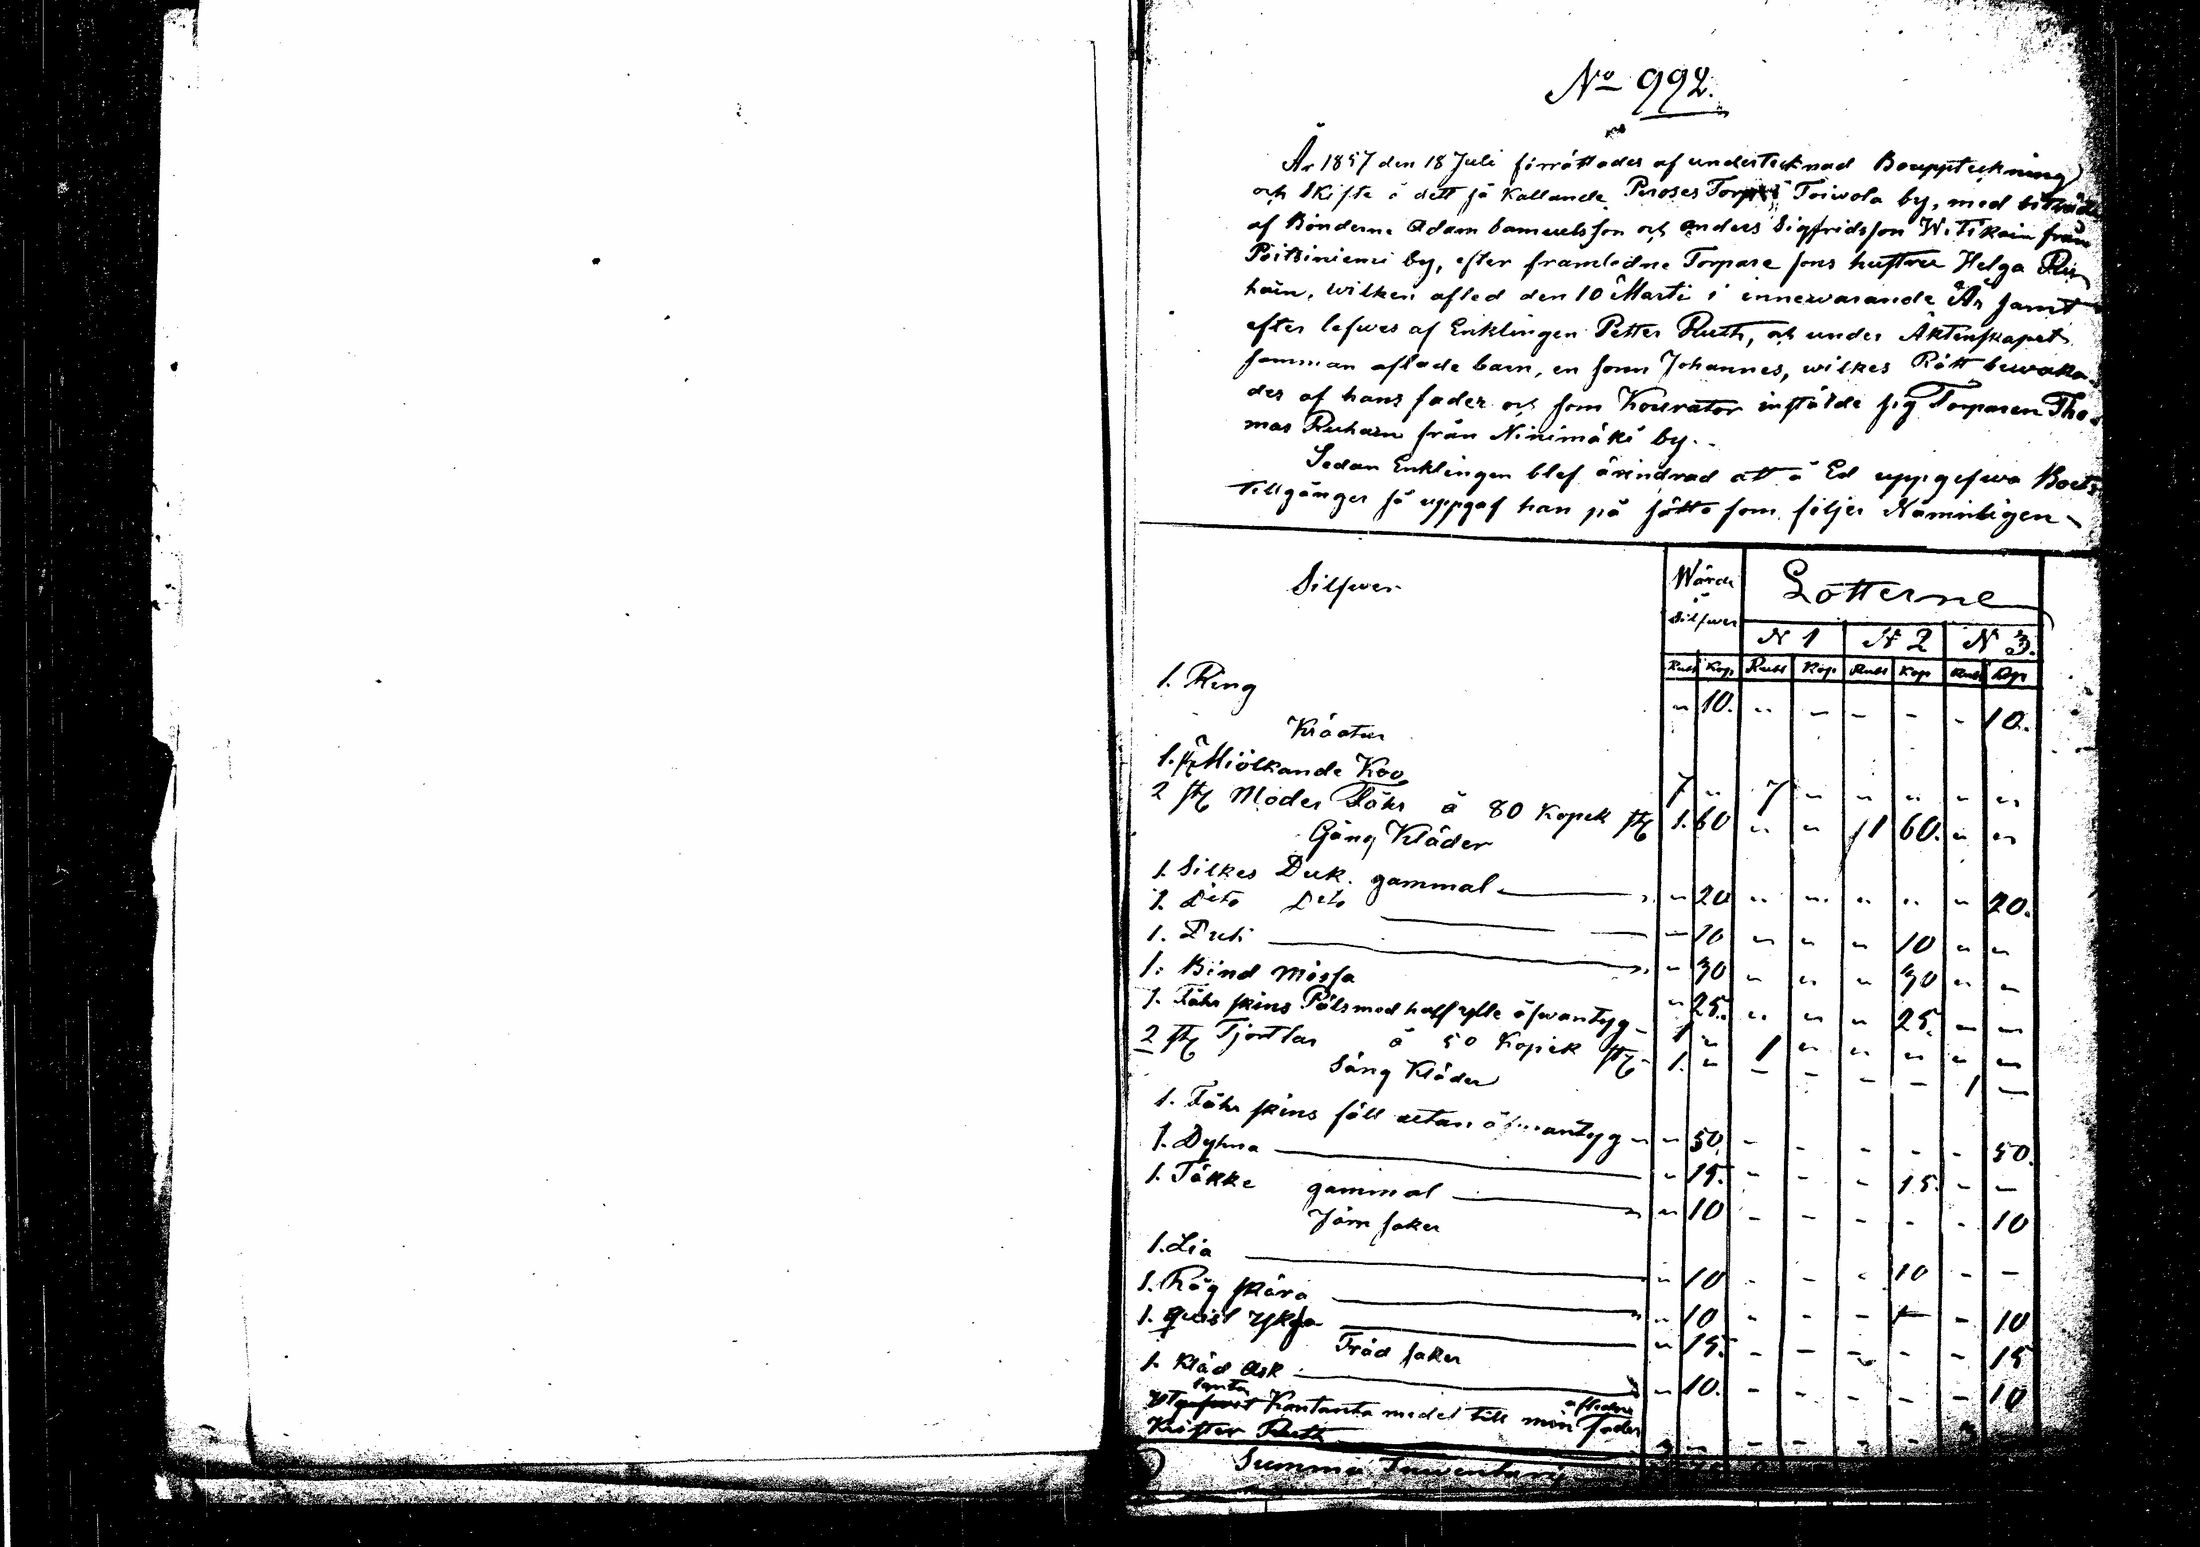 No 992.
År 1857 den 18 Juli förrättades af undertecknad Bouppteckning
och Skifte å dett så kallande Peroses Torp i Toiwola by, med biträde
af Bönderne Adam Samuelsson och Anders Sigfridsson Witikain från
Poitsiniemi by, efter framledne Torpare sons hustru Helga Ru-
hain, wilken afled den 10 Marti i innewarande År samt
efter lefwes af Enklingen Petter Ruth, och under Äktenskapet
samman aflade barn, en sonn Johannes, wilkes Rätt bewaka-
des af hans fader och som Kourator instälde sig Torparen Tho-
mas Ruhain från Ninimäki by.
Sedan Enklingen blef ärindrad att å Ed uppgifwa Boets
tillgånger så uppgaf han på sätte som följer Nämnligen
Silfwer Wärde i Silfwer Lotterne
N 1 N 2 N 3.
Rubl Kop Rubl Kop Rubl Kop Rubl Kop
1. Ring " 10. " - - - - 10.
Kräatur
1. st Miölkande Koo 7 " 7 " " " " "
2 st Moder Fåhr å 80 Kopek st 1. 60 " " 1 60. " "
Gång Kläder
1. Silkes Duk gammal " 20 " " " " " 20.
1. Dito Dito - 10 " " " 10 " "
1. Duk " 30 " " " 30 " "
1. Bind Mössa " 25. " " " 25. " "
1. Fåhr skins Päls med half ylle öfwantyg 1 " 1 " " " " "
2 st Tjortlar å 50 Kopek st 1. " - - - - 1 -
Säng Kläder
1. Fåhr skins fäll utan öfwantyg " 50. - - - - - 50.
1. Dyhna " 15. - - - 15. - -
1. Täkke gammal " 10 - - - - - 10
Järn saker
1. Lia " 10 - - - 10 - -
1. Råg skära " 10 - - - - - 10
1. quist yksa " 15. - - - - - 15
Träd saker
1. Kläd Ask " 10. - - - - - 10
Kontanta medel till min aflidne Fader
Summa Inwentari